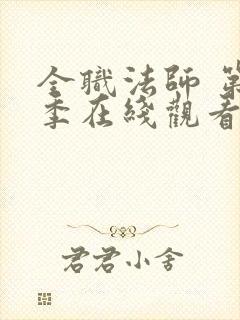 全職法師 第
季在綫觀看
君君小舍